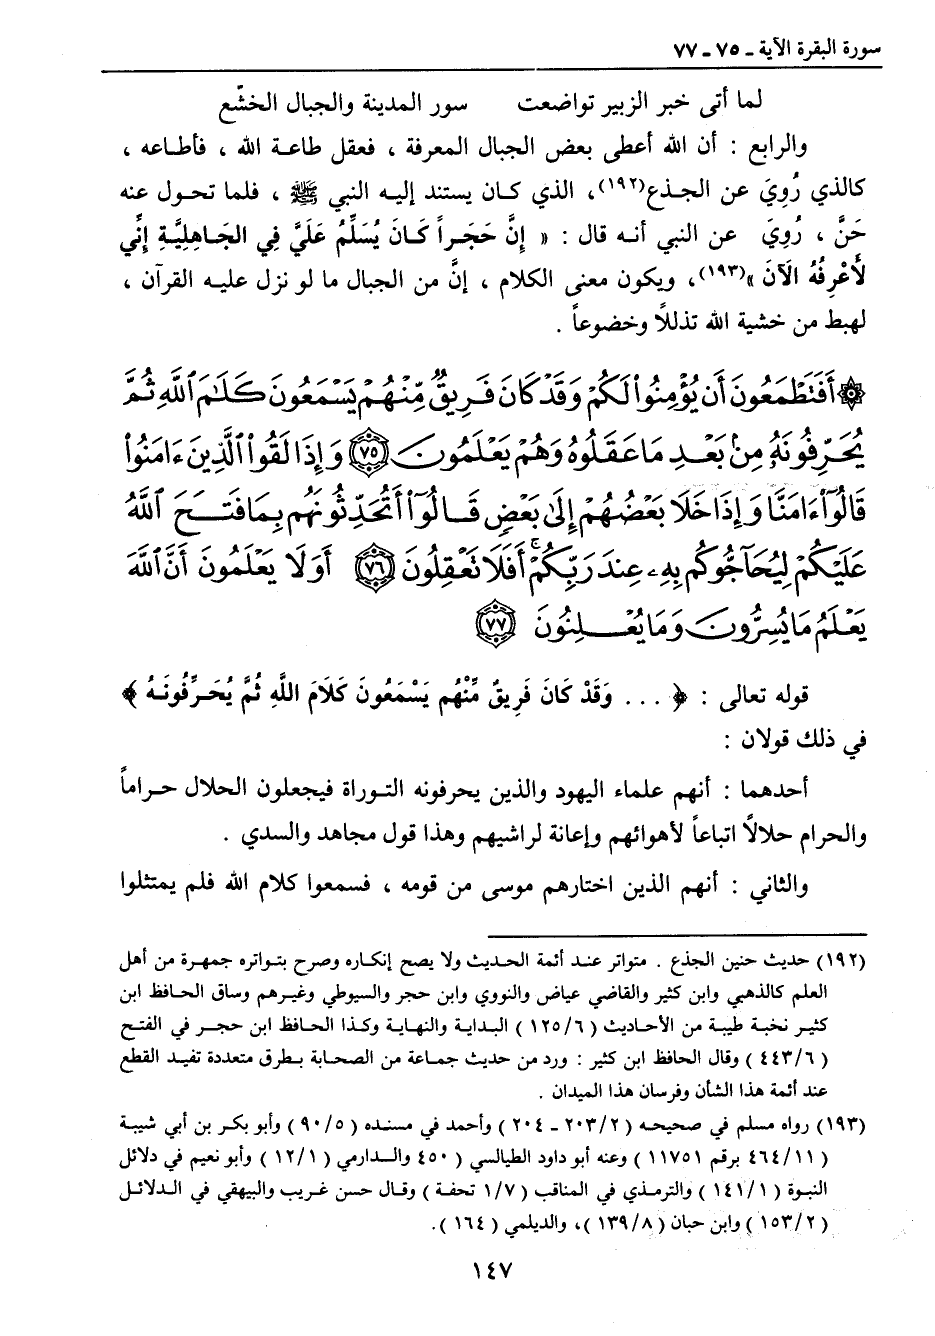 سورة البقرة الآية ـ ٧٥ ـ ٧٧
لما أتى خبر الزبير تواضعت سور المدينة والجبال الخشّع
والرابع : أن الله أعطى بعض الجبال المعرفة ، فعقل طاعة الله ، فأطاعه ،
كالذي رُوِيَ عن الجذع(١٩٢)، الذي كان يستند إليه النبي ﷺ ، فلما تحول عنه
حَنَّ ، رُوِيَ عن النبي أنه قال : « إِنَّ حَجَراً كَانَ يُسَلِّمُ عَلَيَّ فِي الجَاهِلِيَّةِ إِنِّي
لَأَعْرِفُهُ الآنَ »(١٩٣)، ويكون معنى الكلام ، إنَّ من الجبال ما لو نزل عليه القرآن ،
لهبط من خشية الله تذللاً وخضوعاً .
۞ أَفَتَطْمَعُونَ أَن يُؤْمِنُوا۟ لَكُمْ وَقَدْ كَانَ فَرِيقٌ مِّنْهُمْ يَسْمَعُونَ كَلَٰمَ ٱللَّهِ ثُمَّ
يُحَرِّفُونَهُۥ مِنۢ بَعْدِ مَا عَقَلُوهُ وَهُمْ يَعْلَمُونَ ٧٥ وَإِذَا لَقُوا۟ ٱلَّذِينَ ءَامَنُوا۟
قَالُوٓا۟ ءَامَنَّا وَإِذَا خَلَا بَعْضُهُمْ إِلَىٰ بَعْضٍ قَالُوٓا۟ أَتُحَدِّثُونَهُم بِمَا فَتَحَ ٱللَّهُ
عَلَيْكُمْ لِيُحَآجُّوكُم بِهِۦ عِندَ رَبِّكُمْ ۚ أَفَلَا تَعْقِلُونَ ٧٦ أَوَلَا يَعْلَمُونَ أَنَّ ٱللَّهَ
يَعْلَمُ مَا يُسِرُّونَ وَمَا يُعْلِنُونَ ٧٧
قوله تعالى : ﴿ . . . وَقَدْ كَانَ فَرِيقٌ مِّنْهُم يَسْمَعُونَ كَلَامَ اللَّهِ ثُمَّ يُحَرِّفُونَهُ ﴾
في ذلك قولان :
أحدهما : أنهم علماء اليهود والذين يحرفونه التوراة فيجعلون الحلال حراماً
والحرام حلالاً اتباعاً لأهوائهم وإعانة لراشيهم وهذا قول مجاهد والسدي .
والثاني : أنهم الذين اختارهم موسى من قومه ، فسمعوا كلام الله فلم يمتثلوا
(١٩٢) حديث حنين الجذع . متواتر عند أئمة الحديث ولا يصح إنكاره وصرح بتواتره جمهرة من أهل
العلم كالذهبي وابن كثير والقاضي عياض والنووي وابن حجر والسيوطي وغيرهم وساق الحافظ ابن
كثير نخبة طيبة من الأحاديث ( ١٢٥/٦ ) البداية والنهاية وكذا الحافظ ابن حجر في الفتح
( ٤٤٣/٦ ) وقال الحافظ ابن كثير : ورد من حديث جماعة من الصحابة بطرق متعددة تفيد القطع
عند أئمة هذا الشأن وفرسان هذا الميدان .
(١٩٣) رواه مسلم في صحيحه ( ٢٠٣/٢ ـ ٢٠٤ ) وأحمد في مسنده ( ٩٠/٥ ) وأبو بكر بن أبي شيبة
( ٤٦٤/١١ برقم ١١٧٥١ ) وعنه أبو داود الطيالسي ( ٤٥٠ والدارمي ( ١٢/١ ) وأبو نعيم في دلائل
النبوة ( ١٤١/١ ) والترمذي في المناقب ( ١/٧ تحفة ) وقال حسن غريب والبيهقي في الدلائل
( ١٥٣/٢ ) وابن حبان ( ١٣٩/٨ )، والديلمي ( ١٦٤ ).
١٤٧